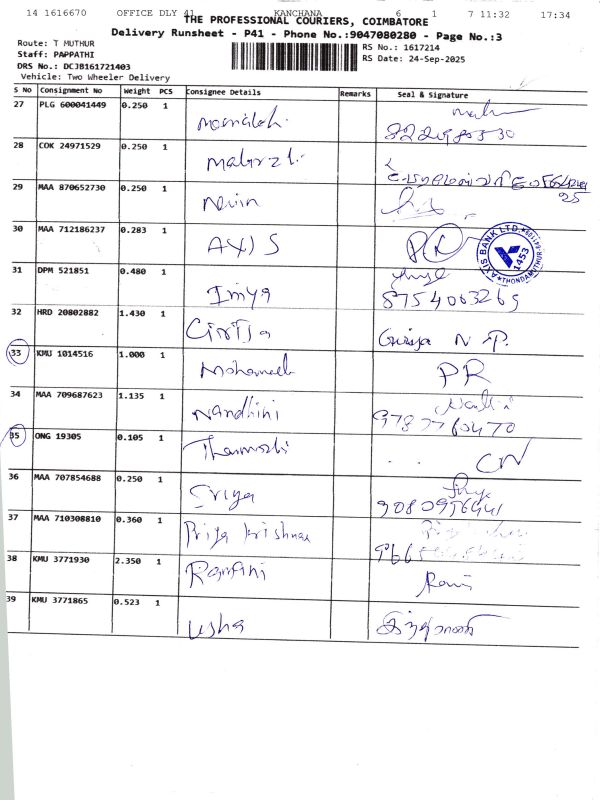 14 1616670 OFFICE DLY 41 KANCHANA 6 1 7 11:32 17:34
THE PROFESSIONAL COURIERS, COIMBATORE
Delivery Runsheet - P41 - Phone No.:9047080280 - Page No.:3
Route: T MUTHUR
Staff: PAPPATHI
DRS No.: DCJB161721403
Vehicle: Two Wheeler Delivery
RS No.: 1617214
RS Date: 24-Sep-2025
S No Consignment No Weight PCS Consignee Details Remarks Seal & Signature
27 PLG 600041449 0.250 1
28 COK 24971529 0.250 1
29 MAA 870652730 0.250 1 Nevin
30 MAA 712186237 0.283 1 AXIS PR
AXIS BANK LTD. 1453 THONDAMUTHUR
31 DPM 521851 0.480 1 Iniya
8754063269
32 HRD 20802882 1.430 1 Girija Girija N. P.
33 KMU 1014516 1.000 1 Mohameed PR
34 MAA 709687623 1.135 1 Nandhini
9787760470
35 ONG 19305 0.105 1 CN
36 MAA 707854688 0.250 1 Sriya
9080956441
37 MAA 710308810 0.360 1 Priya krishnan
38 KMU 3771930 2.350 1 Ranjani
39 KMU 3771865 0.523 1 Usha